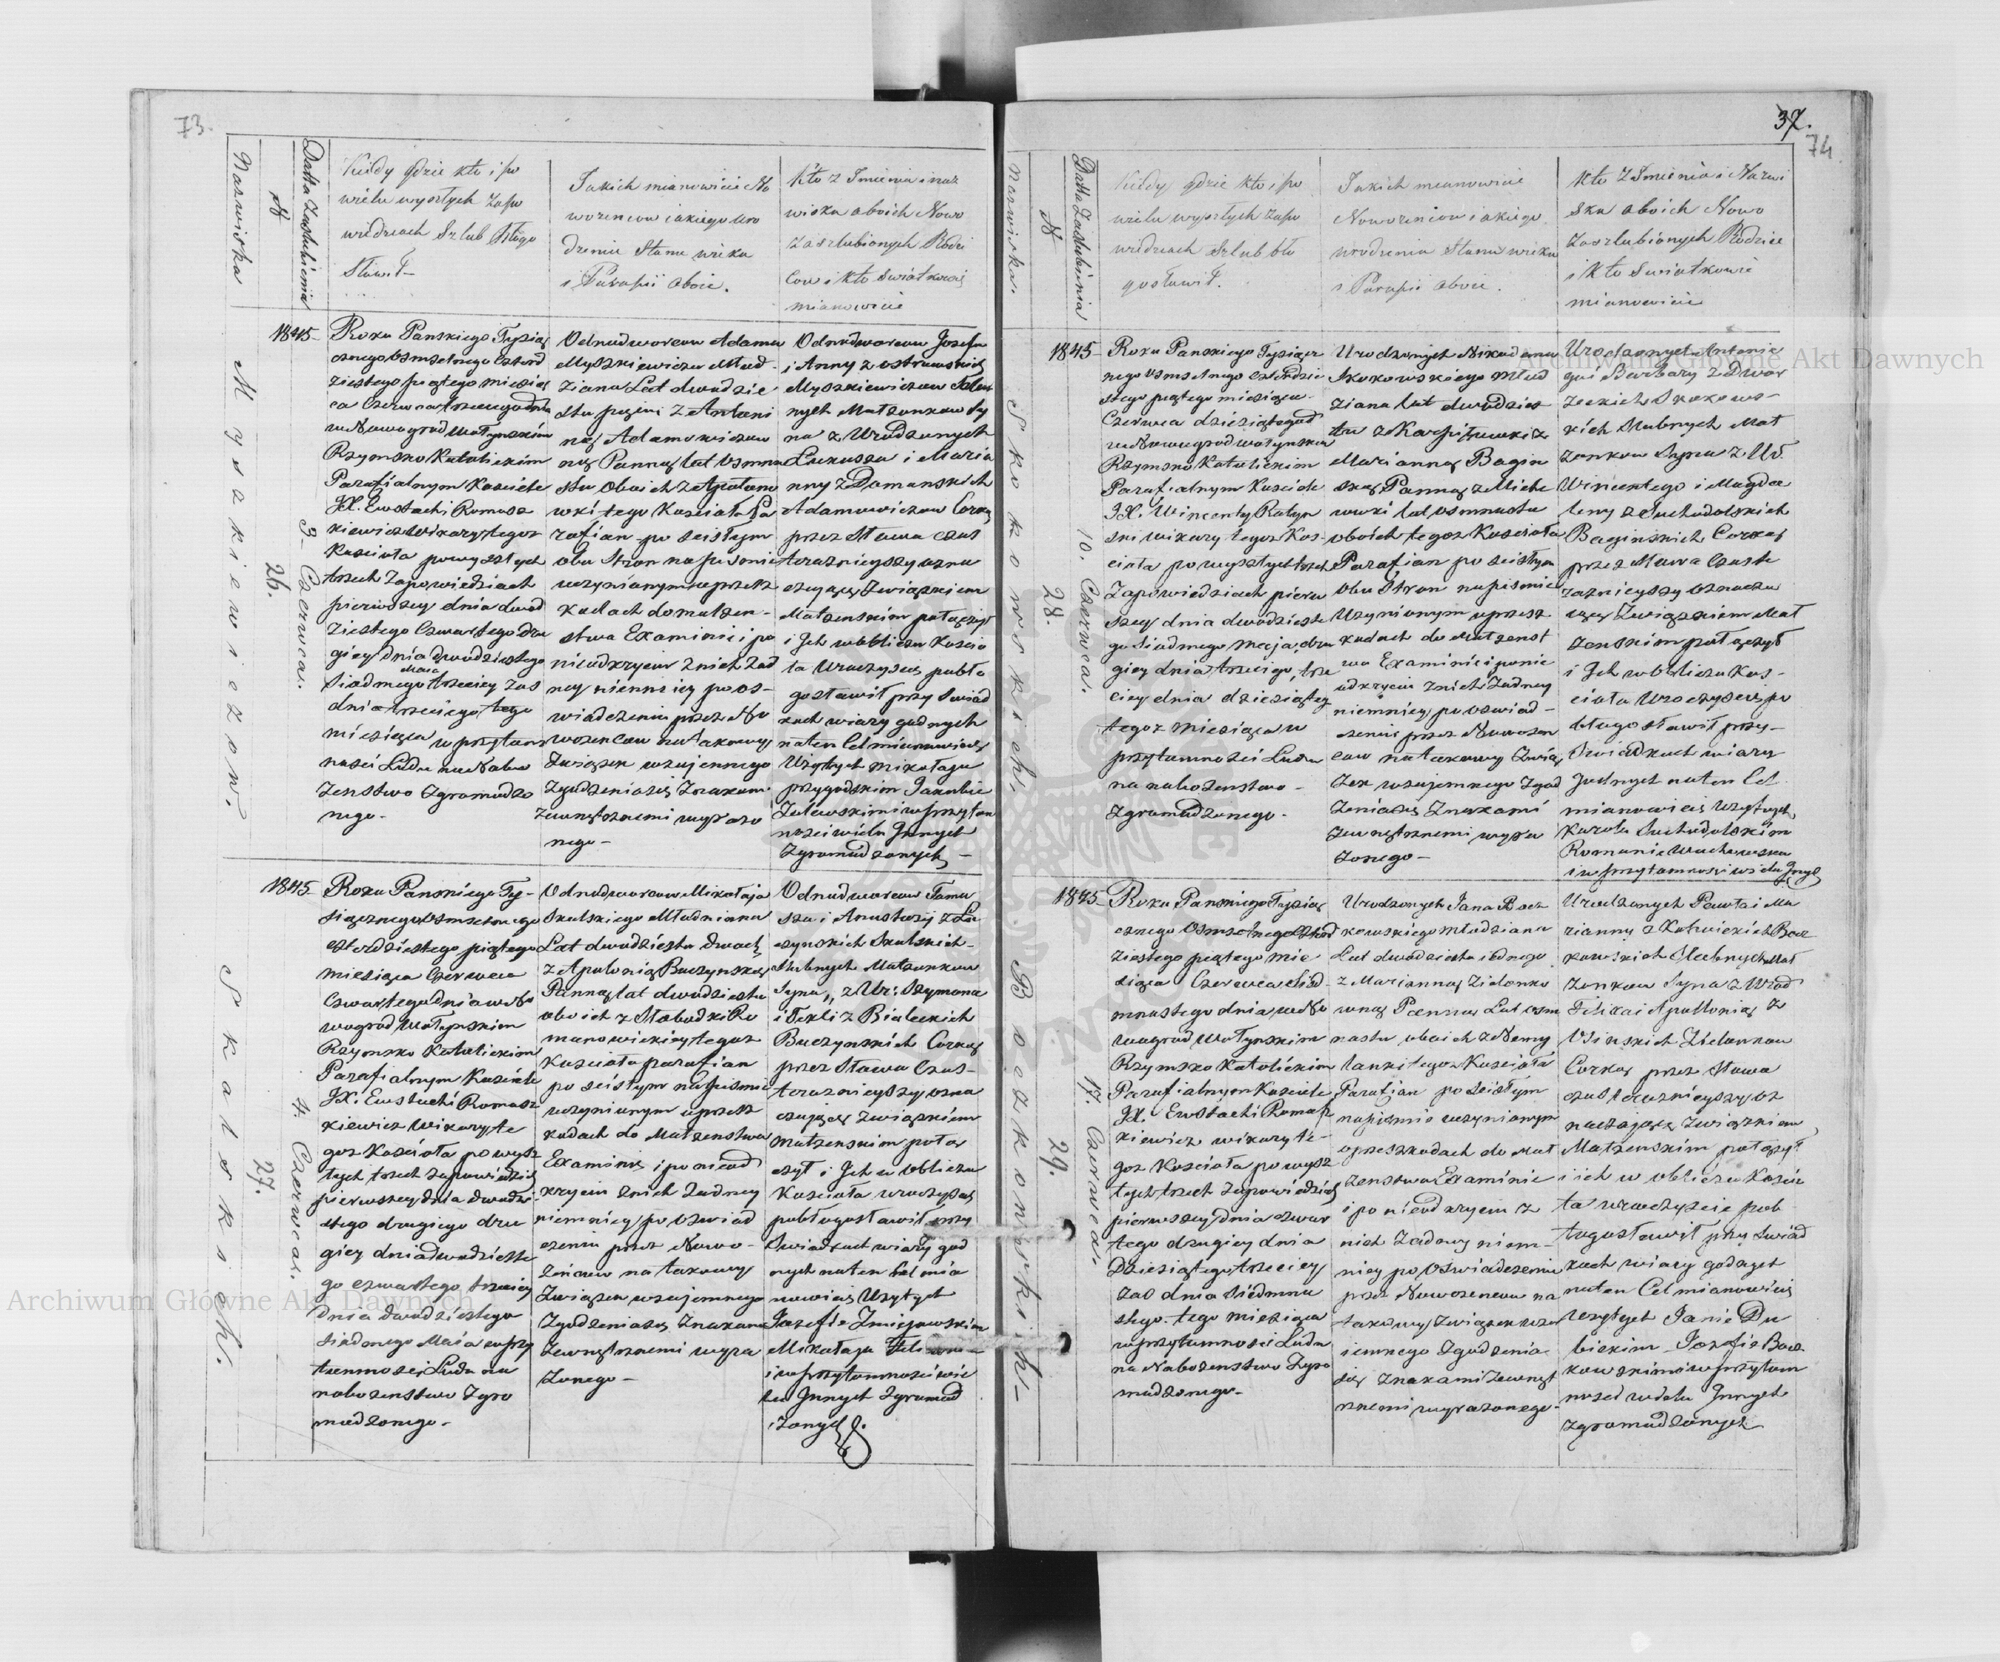 73.
Nazwiska
№
Datta Zaslubienia
Kiedy gdzie kto i po
wielu wyszłych zapo
wiedziach Szlub błogo
sławił
Jakich mianowicie No
wożeńcow i akiego uro
dzenia Stanu wieku
i Parafii oboie.
Kto z Imienia i naz
wiska oboich Nowo
zaszlubionych Rodzi
cow i kto Swiadkowie
mianowicie
Myszkiewiczow.
26.
3. Czerwca.
1845
Roku Panskiego Tysiąc
cznego osmsetnego czterd
ziestego piątego miesią
ca Czerwca trzeciego dnia
w Nowogrod Wołynskim
Rzymsko Katolickim
Parafialnym Kościele
JX. Eustachi Romasz
kiewicz Wikary tegoz
Kościoła po wyszłych
trzech Zapowiedziach
pierwszey dnia dwud
ziestego Czwartego dru
giey dnia dwudziestego
Siodmego Maia trzeciey zas
dnia trzeciego tego
miesiąca w przytom
nosci Ludu na Nabo
zenstwo Zgromadzo
nego
Odnodworcow Adama
Myszkiewicza Młod
ziana Lat dwudzie
stu pięciu z Antoni
ną Adamowiczow
ną Panną lat osmna
stu oboich z Apolono
wki tego Kościoła Pa
rafian po scisłym
obu Stron na pismie
uczynionym o przesz
kodach do małzen
stwa Examinie i po
nieodkryciu z nich zad
ney niemniey po os
wiadczeniu przez No
wozencow na takowy
Związek wzajemnego
Zgodzenia się Znakami
Zewnętrznemi wyrazo
nego
Odnodworcow Jozefa
i Anny z Ostrowskich
Myszkiewiczow Slub
nych Małzonkow Sy
na z Urodzonych
Łukasza i Maria
nny z Domanskich
Adamowiczow Corką
przez Słowa czas
teraznieyszy ozna
czające Związkiem
Małzenskim połączył
i Ich w obliczu Kościo
ła Uroczyscie pobło
gosławił przy Swiad
kach wiary godnych
na ten Cel mianowicie
Uzytych Mikołaju
przygodskim Jakubie
Zalewskim i w przytom
ności wielu Innych
Zgromadzonych
Skalskich.
27.
4. Czerwca.
1845
Roku Panskiego Ty
siącznego Osmsetnego
czterdziestego piątego
miesiąca Czerwca
Czwartego dnia w No
wogrod Wołynskim
Rzymsko Katolickim
Parafialnym Kościele
JX. Eustachi Romasz
kiewicz Wikary te
goz Kościoła po wysz
łych trzech zapowiedziach
pierwszey dnia dwudzie
stego drugiego dru
giey dnia dwudzieste
go czwartego trzeciey
dnia dwudziestego
siodmego Maia w przy
tomnosci Ludu na
nabozenstwo Zgro
madzonego
Odnodworcow Mikołaja
Skalskiego Młodziana
Lat dwudziestu dwoch
z Apolonią Buczynską
Panną lat dwudziestu
oboich z Słobodki Ro
manowieckiey tegoz
Kościoła parafian
po scisłym na pismie
uczynionym o przesz
kodach do Małzenstwa
Examinie i po nieod
kryciu z nich zadney
niemniey po oswiad
czeniu przez Nowo
zencow na takowy
Związek wzajemnego
Zgodzenia się Znakami
Zewnętrznemi wyra
zonego
Odnodworcow Toma
sza i Anastazyi z Lu
czynskich Skalskich
Slubnych Małzonkow
Syna, z Ur: Szymona
i Tekli z Bialeckich
Buczynskich Corką
przez Słowa Czas
teraznieyszy ozna
czające Związkiem
Małzenskim połą
czył i Ich w obliczu
Kościoła uroczyscie
pobłogosławił przy
Swiadkach wiary god
nych na ten Cel mia
nowicie Uzytych
Jozefie Zmiejowskim
Mikołaju
i w przytomnosci wie
lu Innych Zgromad
zonych
37.
74
Nazwiska.
№
Datta Zaslubienia
Kiedy gdzie kto i po
wielu wyszłych zapo
wiedziach Szlub bło
gosławił.
Jakich mianowicie
Nowozencow i akiego
urodzenia Stanu wieku
i Parafii oboie.
Kto z Imienia i Nazwi
ska oboich Nowo
zaszlubionych Rodzice
i Kto Swiatkowie
mianowicie
Skokowskich.
28.
10. Czerwca.
1845
Roku Panskiego Tysiącz
nego osmsetnego czterdzie
stego piątego miesiąca
Czerwca dziesiątego d
w Nowogrod wołynskim
Rzymsko Katolickim
Parafialnym Kościele
JX. Wincenty Ratyn
ski wikary tegoz Kos
cioła po wyszłych trzech
Zapowiedziach pierw
szey dnia dwudzieste
go siodmego Maja, dru
giey dnia trzeciego, trze
ciey dnia dziesiątego
tegoz miesiąca w
przytomnosci Ludu
na nabozenstwo
Zgromadzonego
Urodzonych Nikodema
Skokowskiego Młod
ziana lat dwudzies
tu z Karpiłowki z
Marianną Bagin
ską Panną z Miche
lowki lat osmnastu
oboich tegoz Kościoła
Parafian po scisłym
obu Stron na pismie
Uczynionym o przesz
kodach do Małzenst
wa Examinie i po nie
odkryciu z nich zadney
niemniey po oswiad
czeniu przez Nowozen
cow na takowy Związ
zek wzajemnego Zgod
zenia się Znakami
Zewnętrznemi wyra
zonego
Urodzonych Antonie
go i Barbary z Dwor
zeckich Skokows
kich Slubnych Mał
zonkow Syna z Ur.
Wincentego i Magda
leny z Suchodolskich
Baginskich Corką
przez Słowa Czas te
raznieyszy oznacza
jące Związkiem Mał
zenskim połączył
i Ich w obliczu Kos
cioła Uroczyscie po
błogosławił przy
Swiadkach wiary
Godnych na ten Cel
mianowicie Uzytych
Karolu Suchodolskim
Romanie
i w przytomnosci wielu Innych
Boczkowskich
29.
17. Czerwca.
1845
Roku Panskiego Tysiąc
cznego osmsetnego czterd
ziestego piątego mie
siąca Czerwca Siod
mnastego dnia w No
wogrod Wołynskim
Rzymsko Katolickim
Parafialnym Kościele
JX. Eustachi Romasz
kiewicz wikary te
goz Kościoła po wysz
łych trzech zapowiedziach
pierwszey dnia czwar
tego drugiey dnia
Dziesiątego trzeciey
zas dnia siodmna
stego tego miesiąca
w przytomnosci Ludu
na Nabozenstwo Zgro
madzonego
Urodzonych Jana Bocz
kowskiego Młodziana
Lat dwudziestu iednego
z Marianną Zielonko
wną Panną Lat osm
nastu oboich z Nemy
lanki tegoz Kościoła
Parafian po scisłym
na pismie uczynionym
o przeszkodach do Mał
zenstwa Examinie
i po nieodkryciu z
nich zadney niem
niey po oswiadczeniu
przez Nowozencow na
takowy Związek wza
iemnego Zgodzenia
się Znakami Zewnęt
rznemi wyrazonego
Urodzonych Pawła i Ma
rianny z Kotwickich Bocz
kowskich Slubnych Mał
zonkow Syna z Urod
Felixa i Apollonią z
Osinskich Zielonkow
Corką przez Słowa
czas teraznieyszy oz
naczające Związkiem
Małzenskim połączył
i ich w obliczu Kościo
ła uroczyscie pob
łogosławił przy Swiad
kach wiary godnych
na ten Cel mianowicie
uzytych Janie Du
bickim Jozefie Bocz
kowskim i w przytom
nosci wielu Innych
Zgromadzonych
Archiwum Główne Akt Dawnych
Archiwum Główne Akt Dawnych